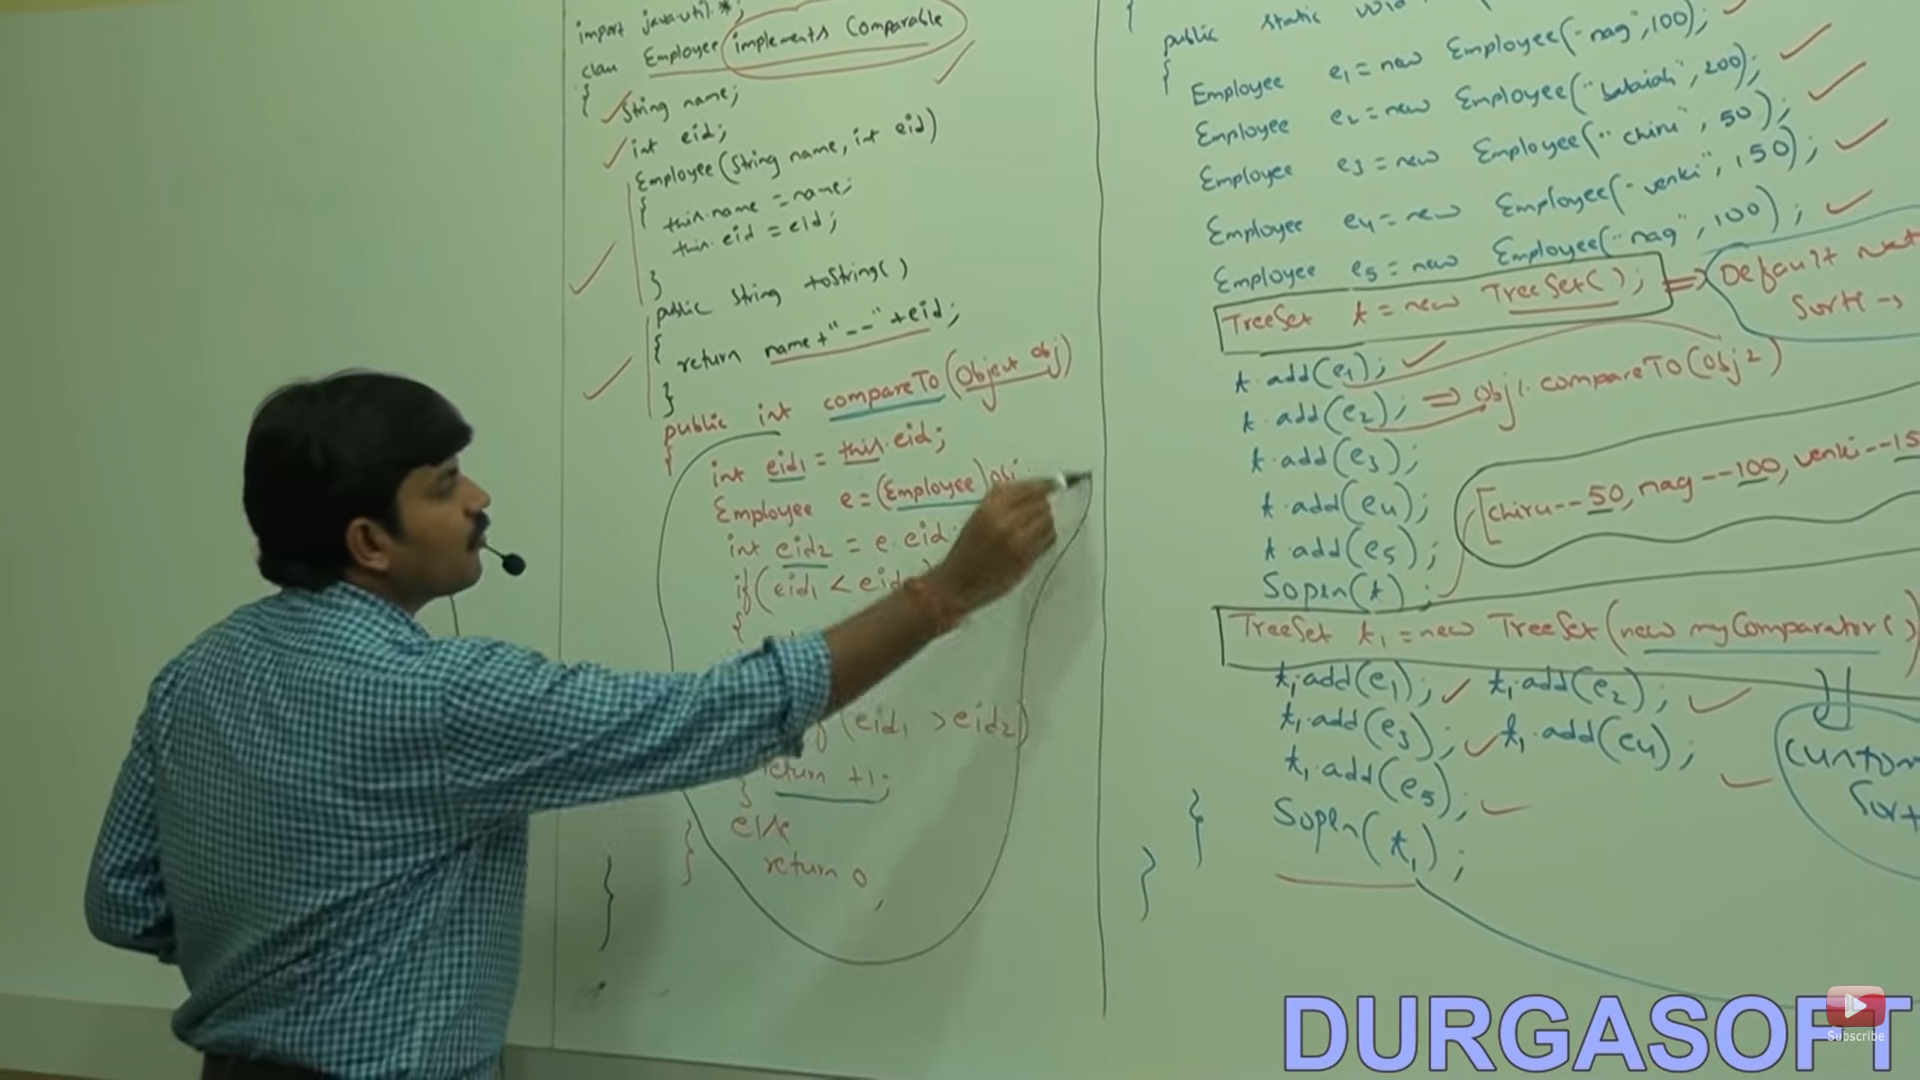 import java.util.*;
class Employee implements Comparable
{
String name;
int eid;
Employee(String name, int eid)
{
this.name = name;
this.eid = eid;
}
public String toString()
{
return name+"--"+eid;
}
public int compareTo(Object obj)
{
int eid1 = this.eid;
Employee e=(Employee)obj
int eid2 = e.eid
if(eid1 < eid
{
if(eid1 > eid2)
return +1;
}
else
return 0
}
}
{
public static void
{
Employee e1=new Employee("nag",100);
Employee e2=new Employee("balaiah",200);
Employee e3=new Employee("chiru", 50);
Employee e4=new Employee("venki",150);
Employee e5=new Employee("nag",100);
TreeSet t=new TreeSet(); => Default
t.add(e1);
t.add(e2); => obj1.compareTo(obj2)
t.add(e3);
t.add(e4);
t.add(e5);
Sopln(t);
[chiru--50, nag--100, venki--15
TreeSet t1=new TreeSet(new myComparator()
t1.add(e1); t1.add(e2);
t1.add(e3); t1.add(e4);
t1.add(e5);
Sopln(t1);
}
}
DURGASOFT
Subscribe